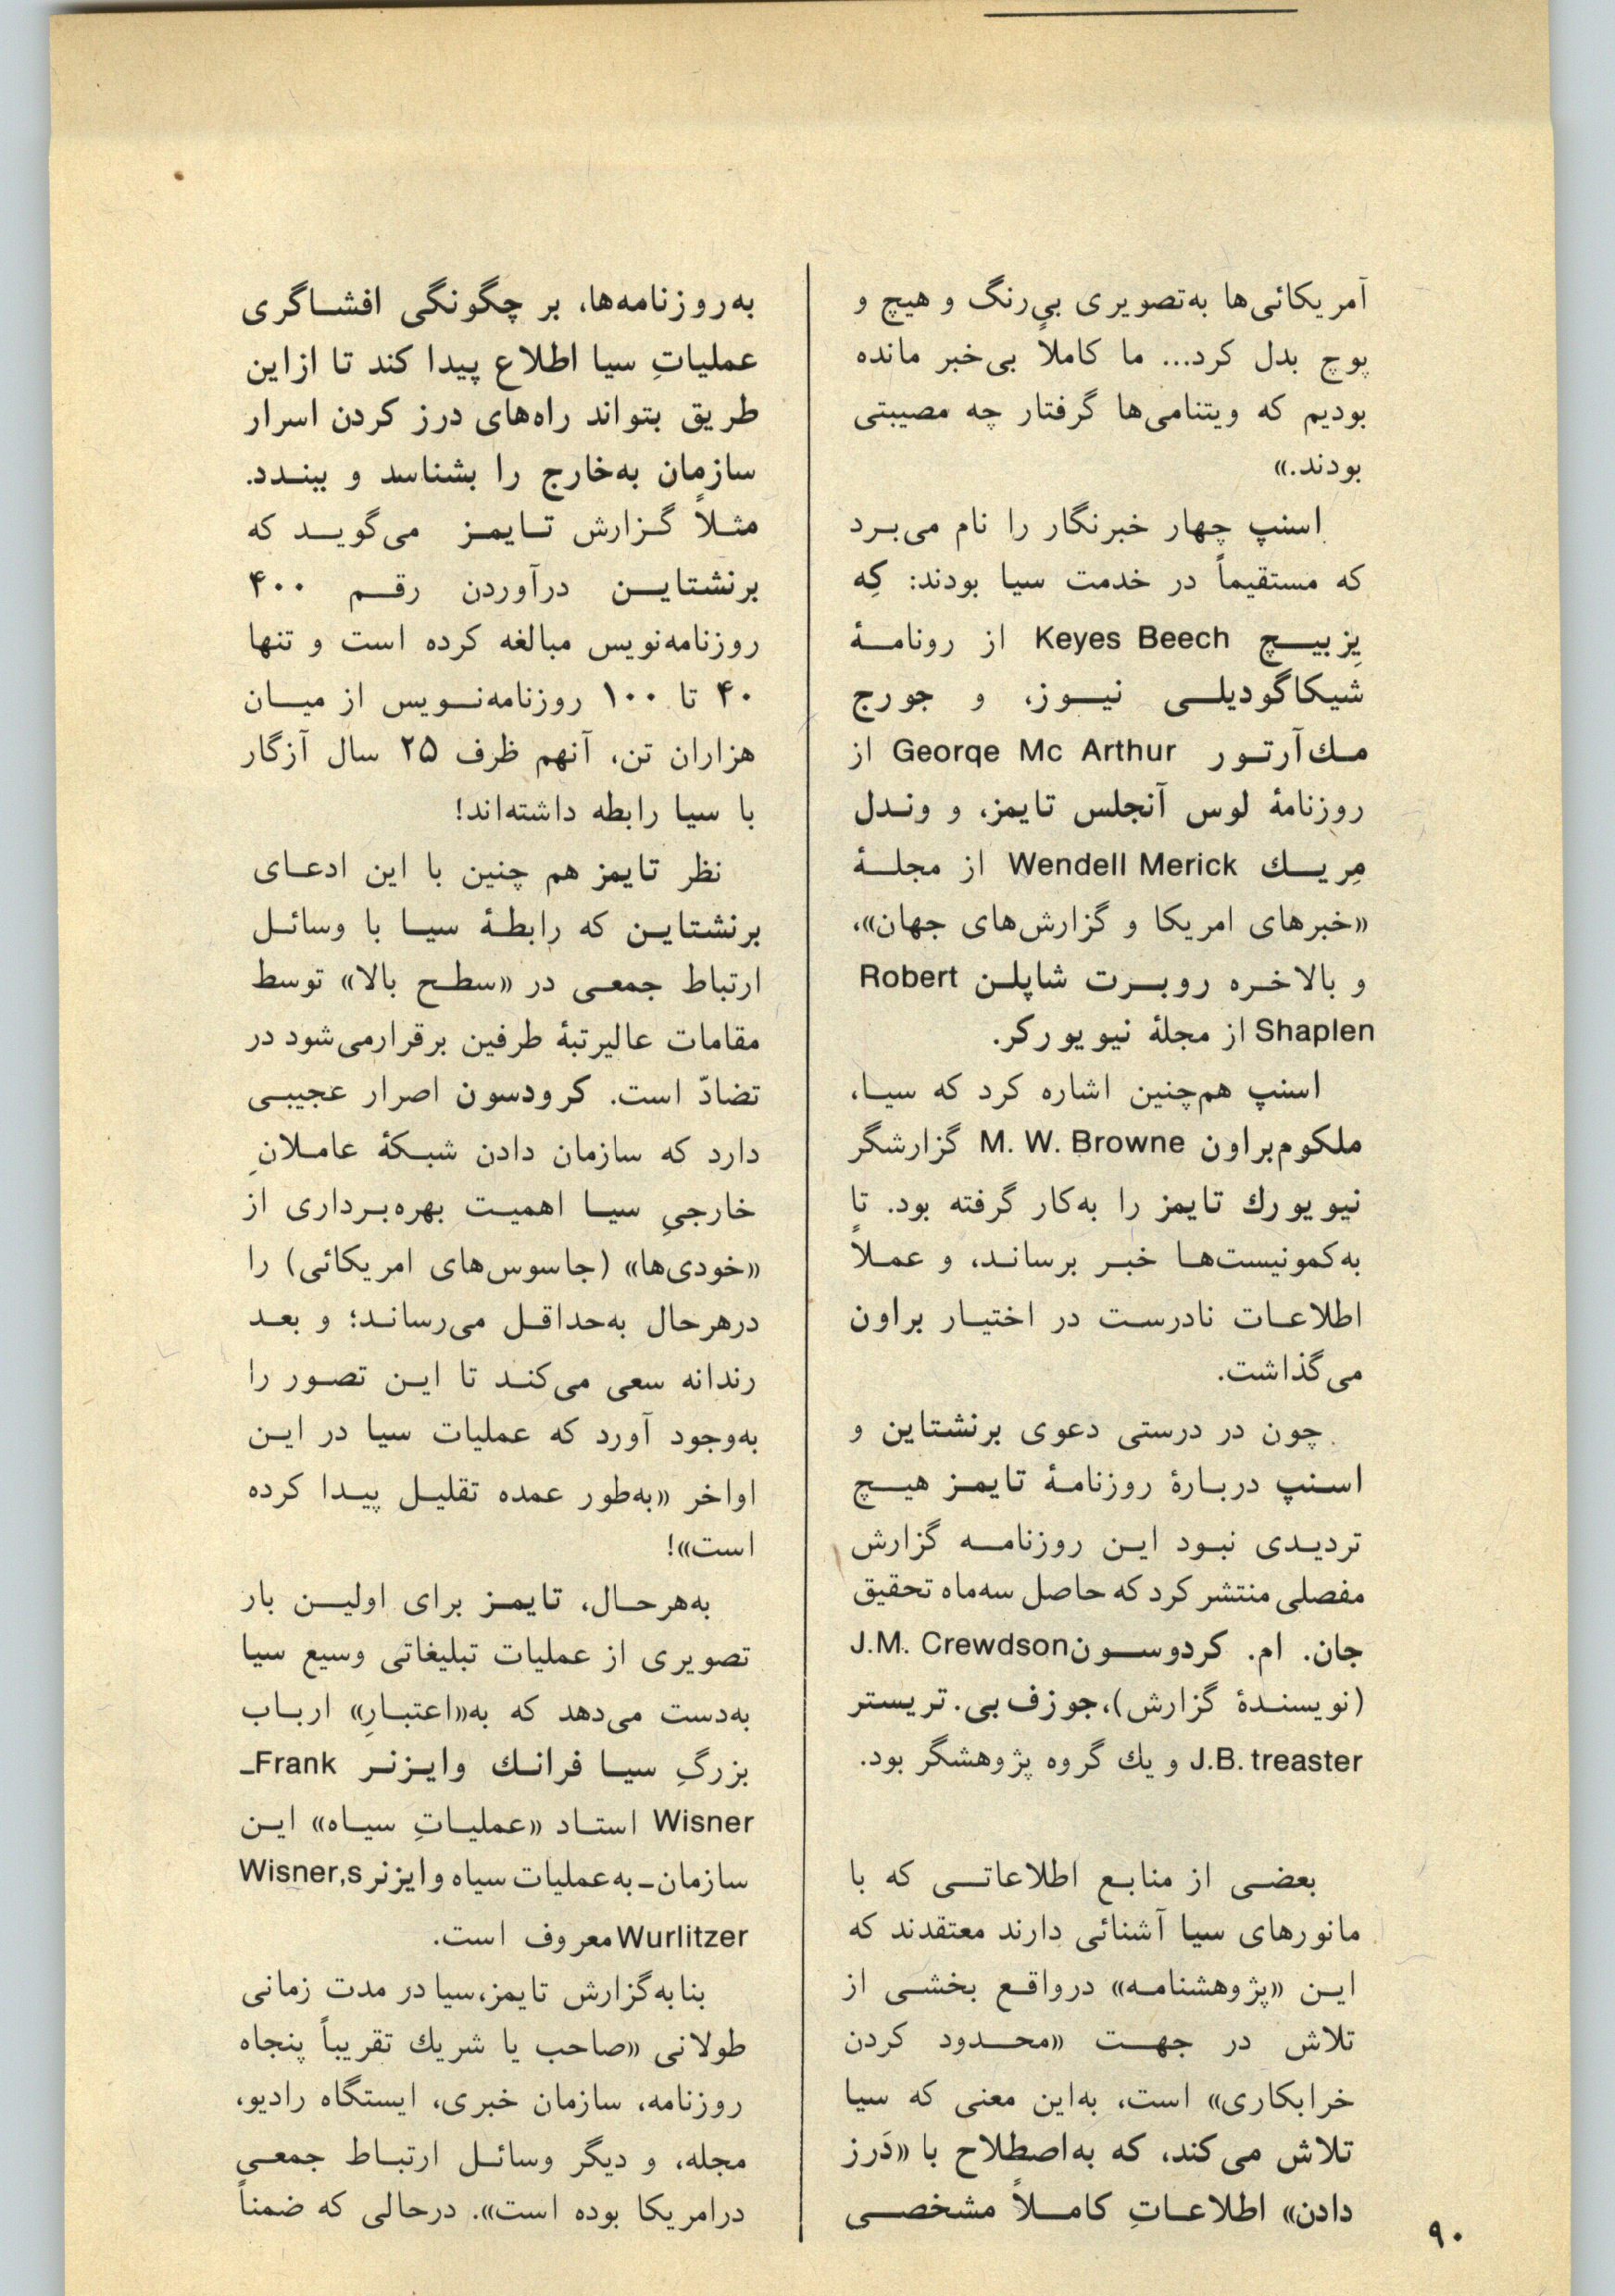 آمریکائی‌ها به‌تصویری بی‌رنگ و هیچ و
پوچ بدل کرد... ما کاملاً بی‌خبر مانده
بودیم که ویتنامی‌ها گرفتار چه مصیبتی
بودند.»
اسنپ چهار خبرنگار را نام می‌برد
که مستقیماً در خدمت سیا بودند: کِه
یِز بیچ Keyes Beech از رونامهٔ
شیکاگودیلی نیوز، و جورج
مك‌آرتور Georqe Mc Arthur از
روزنامهٔ لوس آنجلس تایمز، و وندل
مِریك Wendell Merick از مجلهٔ
«خبرهای امریکا و گزارش‌های جهان»،
و بالاخره روبرت شاپلن Robert
Shaplen از مجلهٔ نیویورکر.
اسنپ هم‌چنین اشاره کرد که سیا،
ملکوم‌براون M. W. Browne گزارشگر
نیویورك تایمز را به‌کار گرفته بود. تا
به‌کمونیست‌ها خبر برساند، و عملاً
اطلاعات نادرست در اختیار براون
می‌گذاشت.
چون در درستی دعوی برنشتاین و
اسنپ دربارهٔ روزنامهٔ تایمز هیچ
تردیدی نبود این روزنامه گزارش
مفصلی منتشر کرد که حاصل سه‌ماه تحقیق
جان. ام. کردوسون J.M. Crewdson
(نویسندهٔ گزارش)، جوزف بی. تریستر
J.B. treaster و یك گروه پژوهشگر بود.
بعضی از منابع اطلاعاتی که با
مانورهای سیا آشنائی دارند معتقدند که
این «پژوهشنامه» درواقع بخشی از
تلاش در جهت «محدود کردن
خرابکاری» است، به‌این معنی که سیا
تلاش می‌کند، که به‌اصطلاح با «دَرز
دادن» اطلاعاتِ کاملاً مشخصی
به‌روزنامه‌ها، بر چگونگی افشاگری
عملیاتِ سیا اطلاع پیدا کند تا ازاین
طریق بتواند راه‌های درز کردن اسرار
سازمان به‌خارج را بشناسد و ببندد.
مثلاً گزارش تایمز می‌گوید که
برنشتاین درآوردن رقم ۴۰۰
روزنامه‌نویس مبالغه کرده است و تنها
۴۰ تا ۱۰۰ روزنامه‌نویس از میان
هزاران تن، آنهم ظرف ۲۵ سال آزگار
با سیا رابطه داشته‌اند!
نظر تایمز هم چنین با این ادعای
برنشتاین که رابطهٔ سیا با وسائل
ارتباط جمعی در «سطح بالا» توسط
مقامات عالیرتبهٔ طرفین برقرارمی‌شود در
تضادّ است. کرودسون اصرار عجیبی
دارد که سازمان دادن شبکهٔ عاملانِ
خارجیِ سیا اهمیت بهره‌برداری از
«خودی‌ها» (جاسوس‌های امریکائی) را
درهرحال به‌حداقل می‌رساند؛ و بعد
رندانه سعی می‌کند تا این تصور را
به‌وجود آورد که عملیات سیا در این
اواخر «به‌طور عمده تقلیل پیدا کرده
است»!
به‌هرحال، تایمز برای اولین بار
تصویری از عملیات تبلیغاتی وسیع سیا
به‌دست می‌دهد که به«اعتبارِ» ارباب
بزرگِ سیا فرانك وایزنر Frank-
Wisner استاد «عملیاتِ سیاه» این
سازمان- به‌عملیات سیاه وایزنر Wisner,s
Wurlitzer معروف است.
بنابه‌گزارش تایمز، سیا در مدت زمانی
طولانی «صاحب یا شریك تقریباً پنجاه
روزنامه، سازمان خبری، ایستگاه رادیو،
مجله، و دیگر وسائل ارتباط جمعی
درامریکا بوده است». درحالی که ضمناً
۹۰